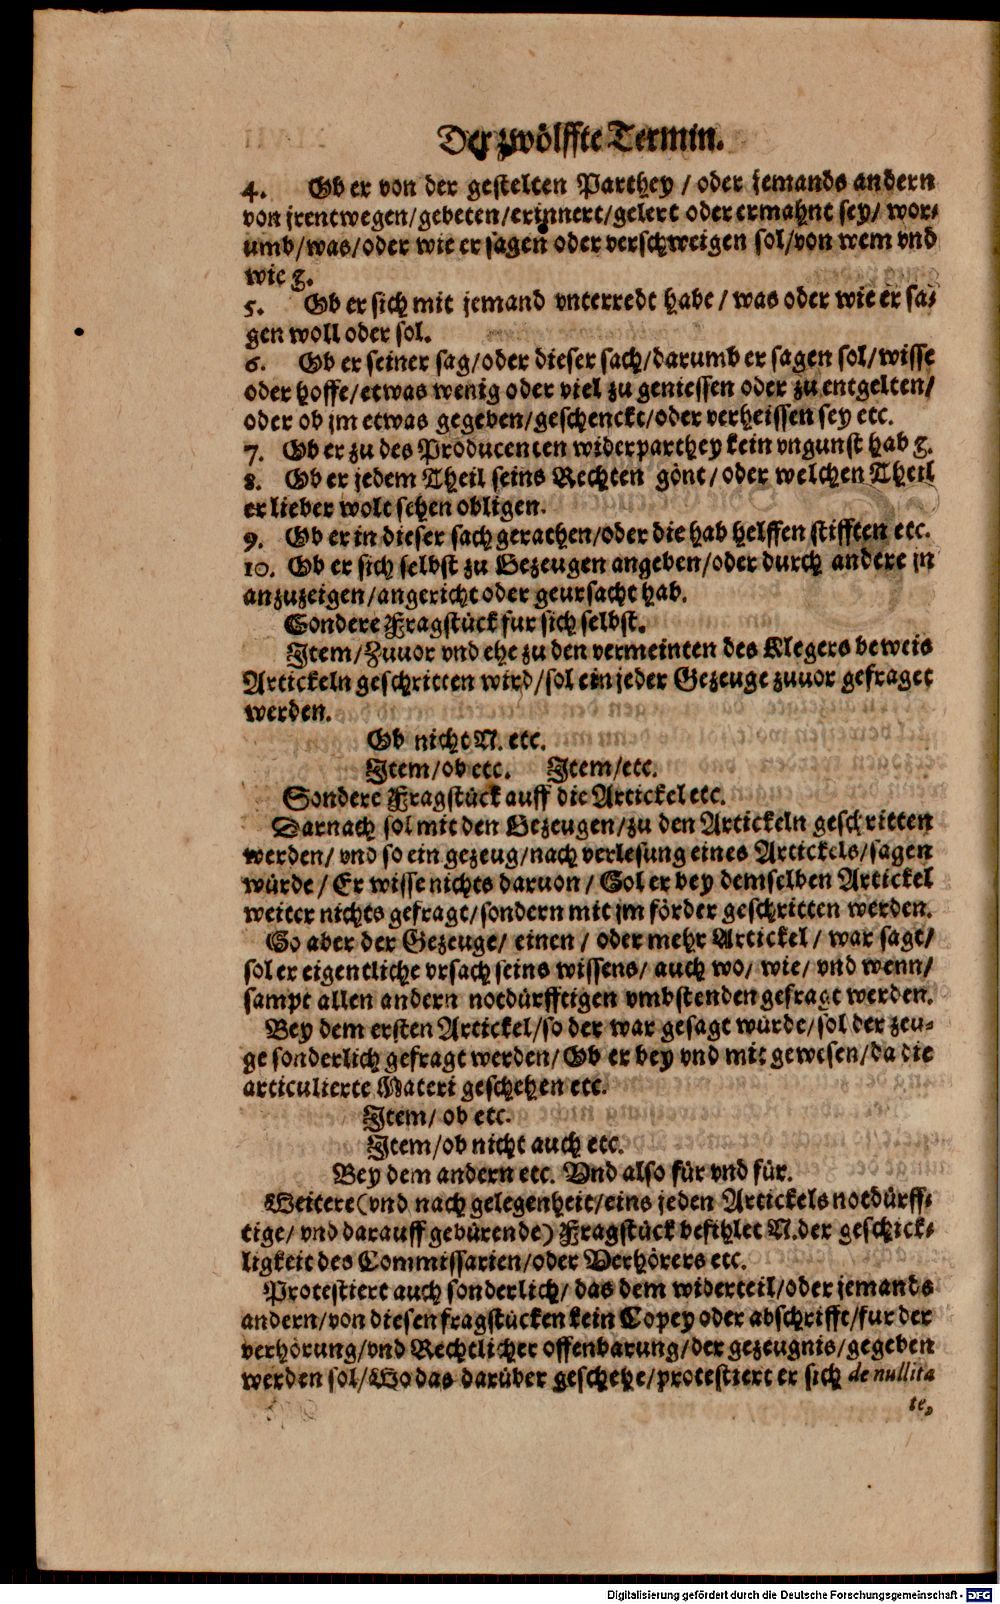 Der zwölffte Termin.
4. Ob er von der gestelten Parthey / oder jemands andern
von jrentwegen/gebeten/erinnert/gelert oder ermahnt sey/ wor-
umb/was/oder wie er sagen oder verschweigen sol/von wem vnd
wie ꝛc.
5. Ob er sich mit jemand vnterredt habe / was oder wie er sa-
gen woll oder sol.
6. Ob er seiner sag/oder dieser sach/darumb er sagen sol/wisse
oder hoffe/etwas wenig oder viel zu geniessen oder zu entgelten/
oder ob jm etwas gegeben/geschenckt/oder verheissen sey etc.
7. Ob er zu des Producenten widerparthey kein vngunst hab ꝛc.
8. Ob er jedem Theil seins Rechten gönt / oder welchen Theil
er lieber wolt sehen obligen.
9. Ob er in dieser sach gerathen/oder die hab helffen stifften etc.
10. Ob er sich selbst zu Gezeugen angeben/oder durch andere jn
anzuzeigen/angericht oder geursacht hab.
Sondere Fragstück fur sich selbst.
Item/Zuuor vnd ehe zu den vermeinten des Klegers beweis
Artickeln geschritten wird/sol ein jeder Gezeuge zuuor gefraget
werden.
Ob nicht N. etc.
Item/ob etc. Item/etc.
Sondere Fragstück auff die Artickel etc.
Darnach sol mit den Gezeugen/zu den Artickeln geschritten
werden/ vnd so ein gezeug/nach verlesung eines Artickels/sagen
würde / Er wisse nichts daruon / Sol er bey demselben Artickel
weiter nichts gefragt/sondern mit jm förder geschritten werden.
So aber der Gezeuge/ einen / oder mehr Artickel / war sagt/
sol er eigentliche vrsach seins wissens/ auch wo/ wie/ vnd wenn/
sampt allen andern notdürfftigen vmbstenden gefragt werden.
Bey dem ersten Artickel/so der war gesagt würde/sol der zeu-
ge sonderlich gefragt werden/ Ob er bey vnd mit gewesen/da die
articulierte Materi geschehen etc.
Item/ ob etc.
Item/ob nicht auch etc.
Bey dem andern etc. Vnd also für vnd für.
Weitere (vnd nach gelegenheit/eins jeden Artickels notdürff-
tige/ vnd darauff gebürende) Fragstück befihlet N. der geschick-
ligkeit des Commissarien/oder Verhörers etc.
Protestiert auch sonderlich/ das dem widerteil/oder jemands
andern/von diesen fragstücken kein Copey oder abschrifft/fur der
verhörung/vnd Rechtlicher offenbarung/der gezeugnis/gegeben
werden sol/Wo das darüber geschehe/protestiert er sich de nullita
te,
Digitalisierung gefördert durch die Deutsche Forschungsgemeinschaft - DFG